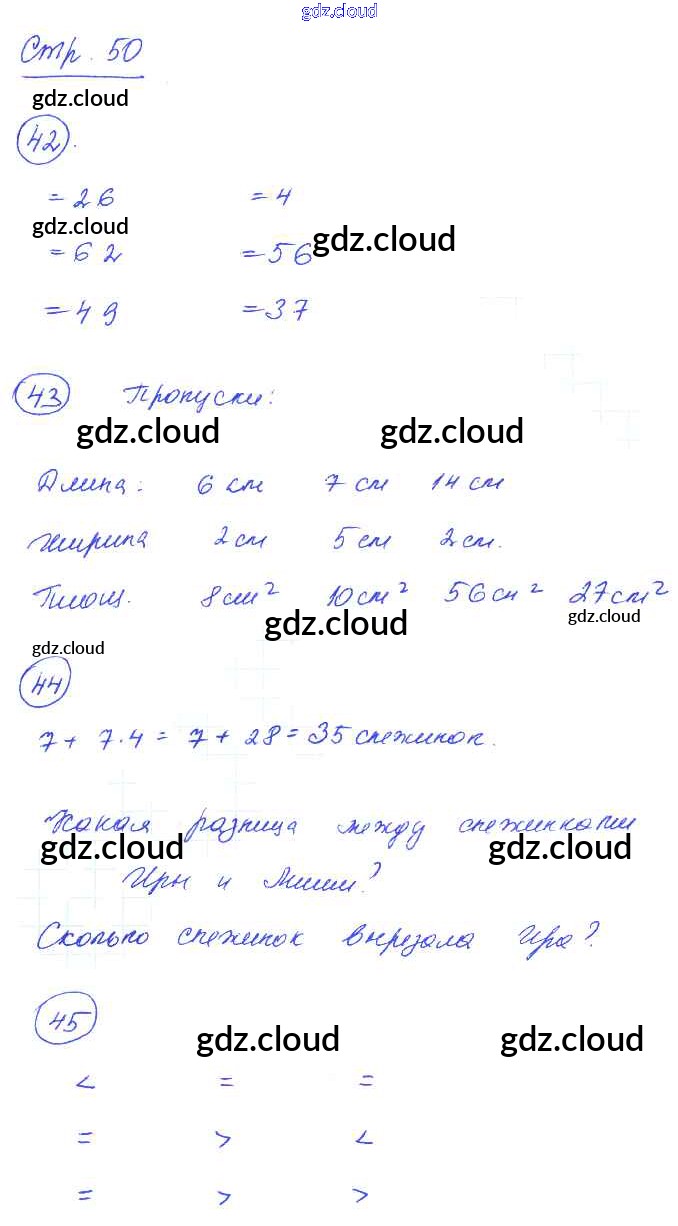 gdz.cloud
Стр. 50
gdz.cloud
42.
= 26 = 4
gdz.cloud gdz.cloud
= 62 = 56
= 49 = 37
43 Пропуски:
gdz.cloud gdz.cloud
Длина: 6 см 7 см 14 см
ширина 2 см 5 см 2 см.
Площ. 8 см² 10 см² 56 см² 27 см²
gdz.cloud gdz.cloud
gdz.cloud
44
7 + 7·4 = 7 + 28 = 35 снежинок.
Какая разница между снежинками
gdz.cloud gdz.cloud
Иры и Миши?
Сколько снежинок вырезала Ира?
45
gdz.cloud gdz.cloud
< = =
= > <
= > >